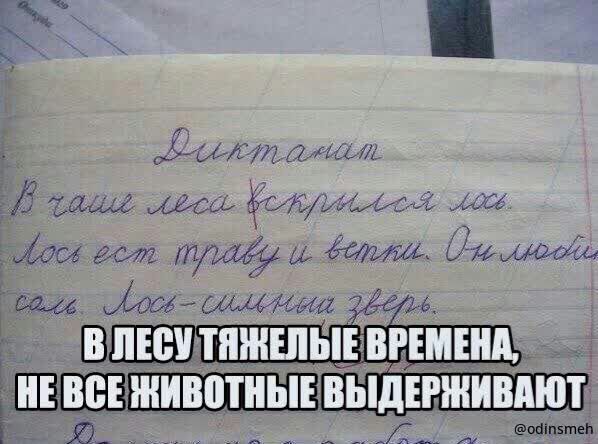 Диктанат
В чаше леса вскрылся лось.
Лось ест траву и ветки. Он люби
соль. Лось – сильныш зверь.
В ЛЕСУ ТЯЖЕЛЫЕ ВРЕМЕНА,
НЕ ВСЕ ЖИВОТНЫЕ ВЫДЕРЖИВАЮТ
@odinsmeh